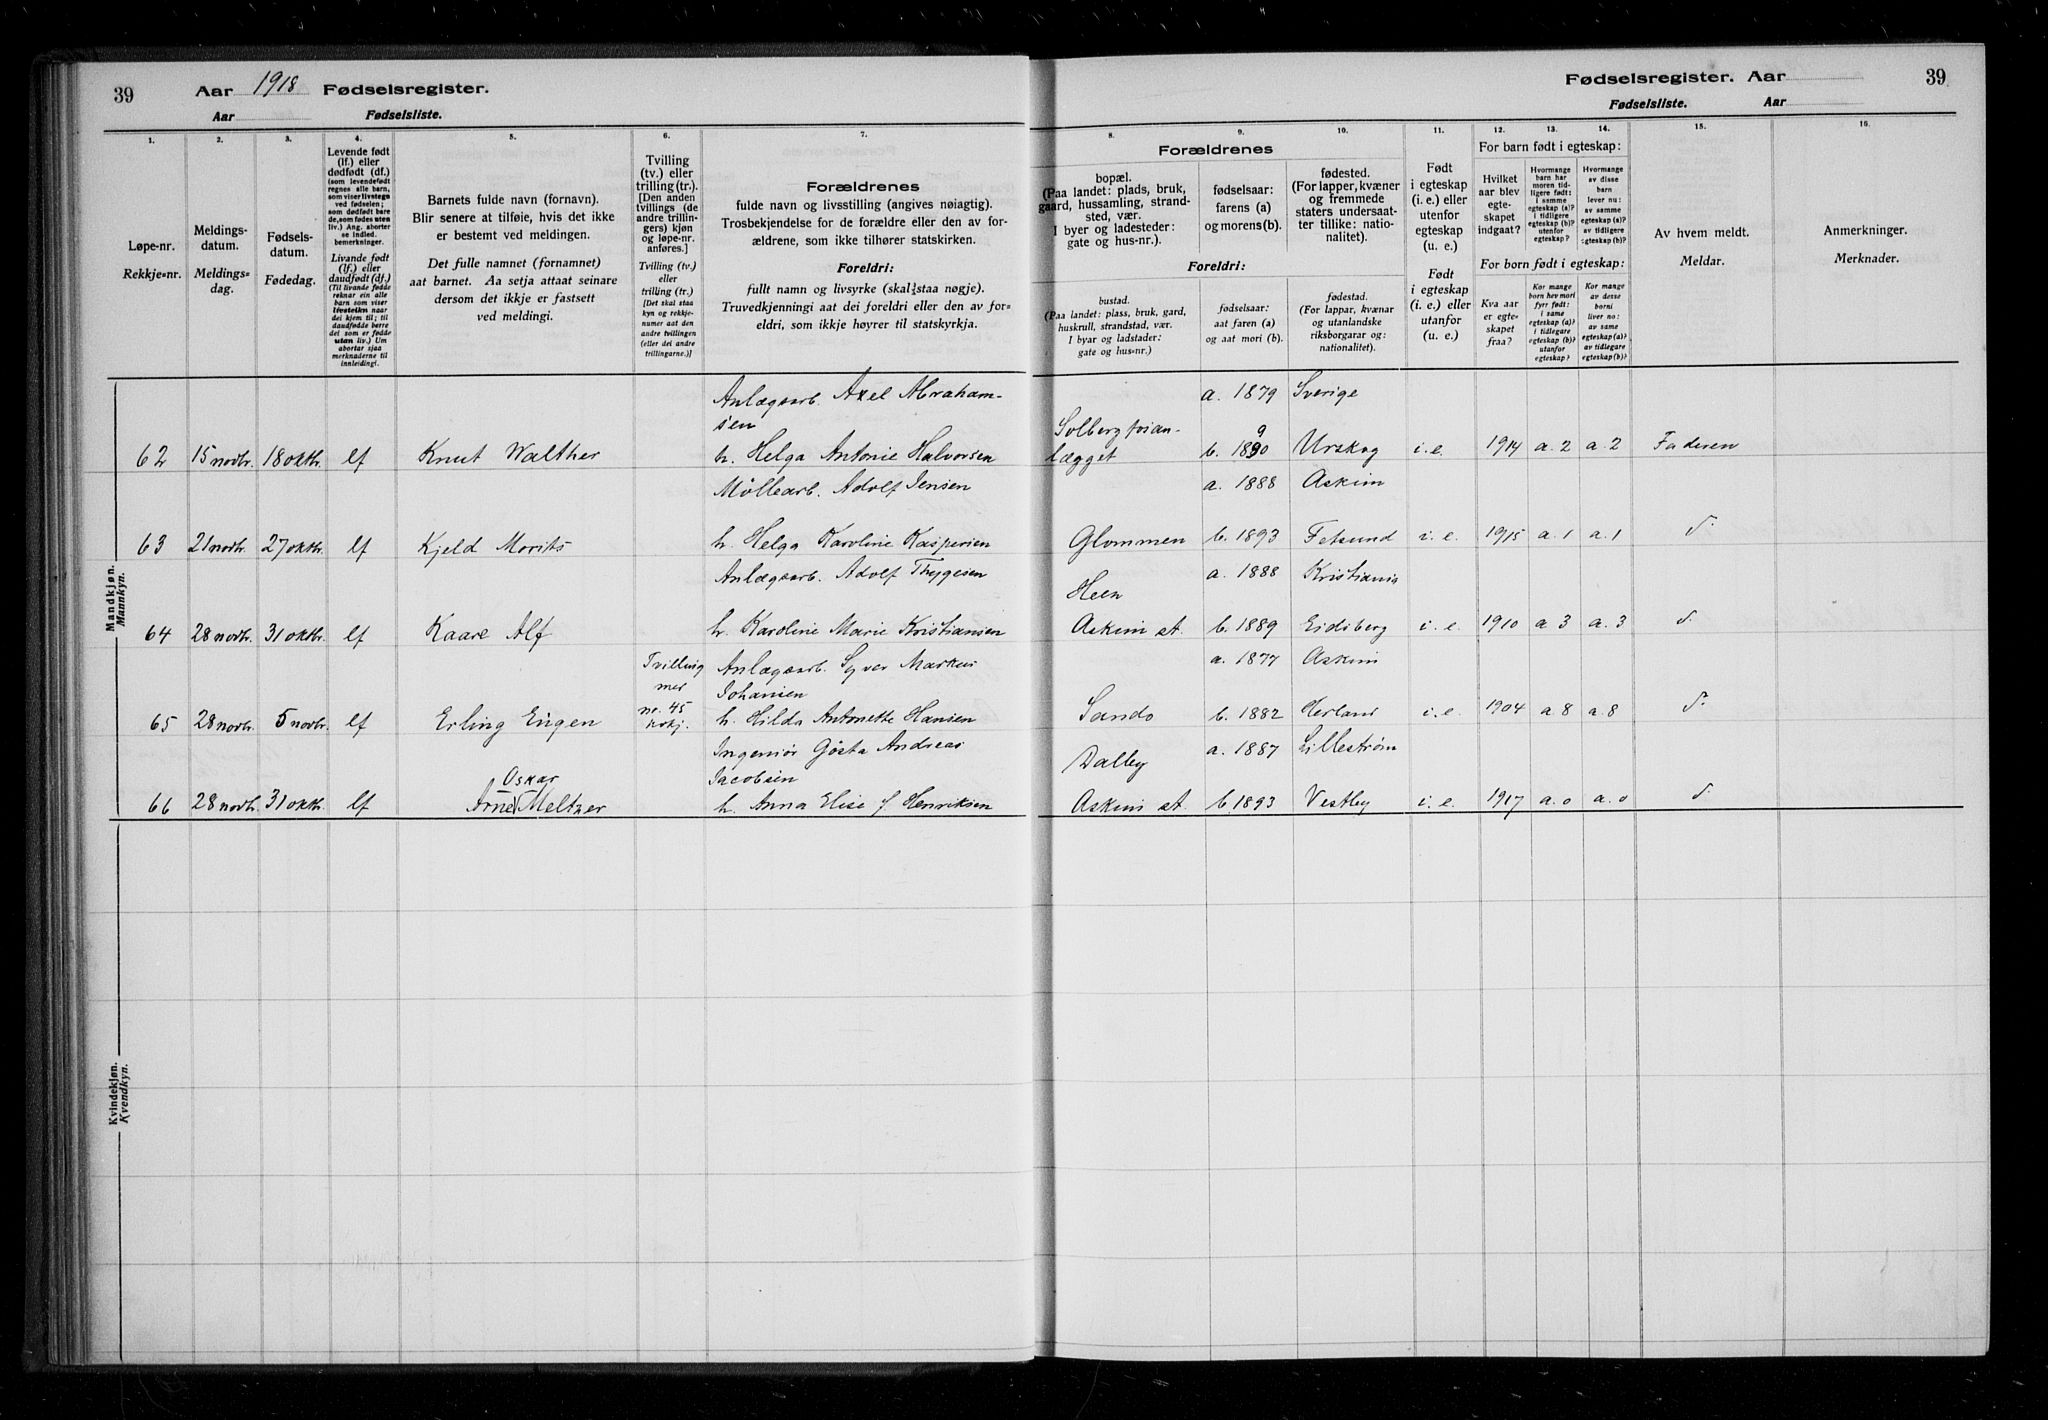 39 Aar 1918 Fødselsregister.
Aar Fødselsliste.
Fødselsregister. Aar 39
Fødselsliste. Aar
1. 2. 3. 4. 5. 6. 7. 8. 9. 10. 11. 12. 13. 14. 15. 16.
Løpe-nr.
Rekkje=nr.
Meldings-
datum.
Meldings=
dag.
Fødsels-
datum.
Fødedag.
Levende født
(lf.) eller
dødfødt (df.)
(som levendefødt
regnes alle barn,
som viser livstegn
ved fødselen;
som dødfødt bare
de, som fødes uten
liv.) Ang. aborter
se indled.
bemerkninger.
Livande fødd
(lf.) eller
daudfødt (df.)
(Til livande fødde
reknar ein alle
barn som viser
livsteikn naar
dei kjem til; til
daudfødde berre
dei som er fødde
utan liv.) Um
abortar sjaa
merknaderne til
innleidingi.
Barnets fulde navn (fornavn).
Blir senere at tilføie, hvis det ikke
er bestemt ved meldingen.
Det fulle namnet (fornamnet)
aat barnet. Aa setja attaat seinare
dersom det ikkje er fastsett
ved meldingi.
Tvilling
(tv.) eller
trilling (tr.).
[Den anden
tvillings (de
andre trillin-
gers) kjøn
og løpe-nr.
anføres.]
Tvilling (tv.)
eller
trilling (tr.)
[Det skal staa
kyn og rekkje-
numer aat den
andre tvillingen
(eller dei andre
trillingarne.)]
Forældrenes
fulde navn og livsstilling (angives nøiagtig).
Trosbekjendelse for de forældre eller den av for-
ældrene, som ikke tilhører statskirken.
Foreldri:
fullt namn og livsyrke (skal staa nøgje).
Truvedkjenningi aat dei foreldri eller den av for=
eldri, som ikkje høyrer til statskyrkja.
Forældrenes
bopæl.
(Paa landet: plads, bruk,
gaard, hussamling, strand-
sted, vær.
I byer og ladesteder:
gate og hus-nr.).
fødselsaar:
farens (a)
og morens (b).
fødested.
(For lapper, kvæner
og fremmede
staters undersaat-
ter tillike: natio-
nalitet).
Foreldri:
bustad.
(Paa landet: plass, bruk, gard,
huskrull, strandstad, vær.
I byar og ladstader:
gate og hus=nr.)
fødselsaar:
aat faren (a)
og aat mori (b).
fødestad.
(For lappar, kvænar
og utanlandske
riksborgarar og:
nationalitet).
Født
i egteskap
(i. e.) eller
utenfor
egteskap
(u. e.)
Født
i egteskap
(i. e.) eller
utanfor
(u. e.)
For barn født i egteskap:
Hvilket
aar blev
egte-
skapet
indgaat?
Hvormange
barn har
moren tid-
ligere født:
i samme
egteskap (a)?
i tidligere
egteskap (b)?
utenfor
egteskap?
Hvormange
av disse
barn
lever nu:
av samme
egteskap (a)?
av tidligere
egteskap (b)?
For born født i egteskap:
Kva aar
er egte-
skapet
fraa?
Kor mange
born hev mori
fyrr født:
i same
egteskap (a)?
i tidlegare
egteskap (b)?
utanfor
egteskap?
Kor mange
av desse
borni
liver no:
av same
egteskap (a)?
av tidlegare
egteskap (b)?
Av hvem meldt.
Meldar.
Anmerkninger.
Merknader.
Mandkjøn.
Mannkyn.
Anlægsarb. Axel Abraham- a. 1879 Sverige
sen Solbergfosan- 9
62 15 novbr. 18 oktbr. lf Knut Walther h. Helga Antonie Halvorsen lægget b. 1890 Urskog i. e. 1914 a. 2 a. 2 Faderen
Møllearb. Adolf Jensen a. 1888 Askim
63 21 novbr. 27 oktbr. lf Kjeld Morits h. Helga Karoline Kaspersen Glommen b. 1893 Fetsund i. e. 1915 a. 1 a. 1 d.
Anlægsarb. Adolf Thygesen Heen a. 1888 Kristiania
64 28 novbr. 31 oktbr. lf Kaare Alf h. Karoline Marie Kristiansen Askim st. b. 1889 Eidsberg i. e. 1910 a 3 a. 3 d.
Tvilling Anlægsarb. Syver Markus a. 1877 Askim
mer Johansen
65 28 novbr. 5 novbr. lf Erling Eugen nr. 45 kvkj. h. Hilda Antonette Hansen Sando b. 1882 Herland i. e. 1904 a 8 a. 8 d.
Ingeniør Gösta Andreas Dalby a. 1887 Lillestrøm
Oskar Jacobsen
66 28 novbr. 31 oktbr. lf Arne Meltzer h. Anna Elise f Henriksen Askim st. b. 1893 Vestby i. e. 1917 a. 0 a. 0 d.
Kvindekjøn.
Kvendkyn.